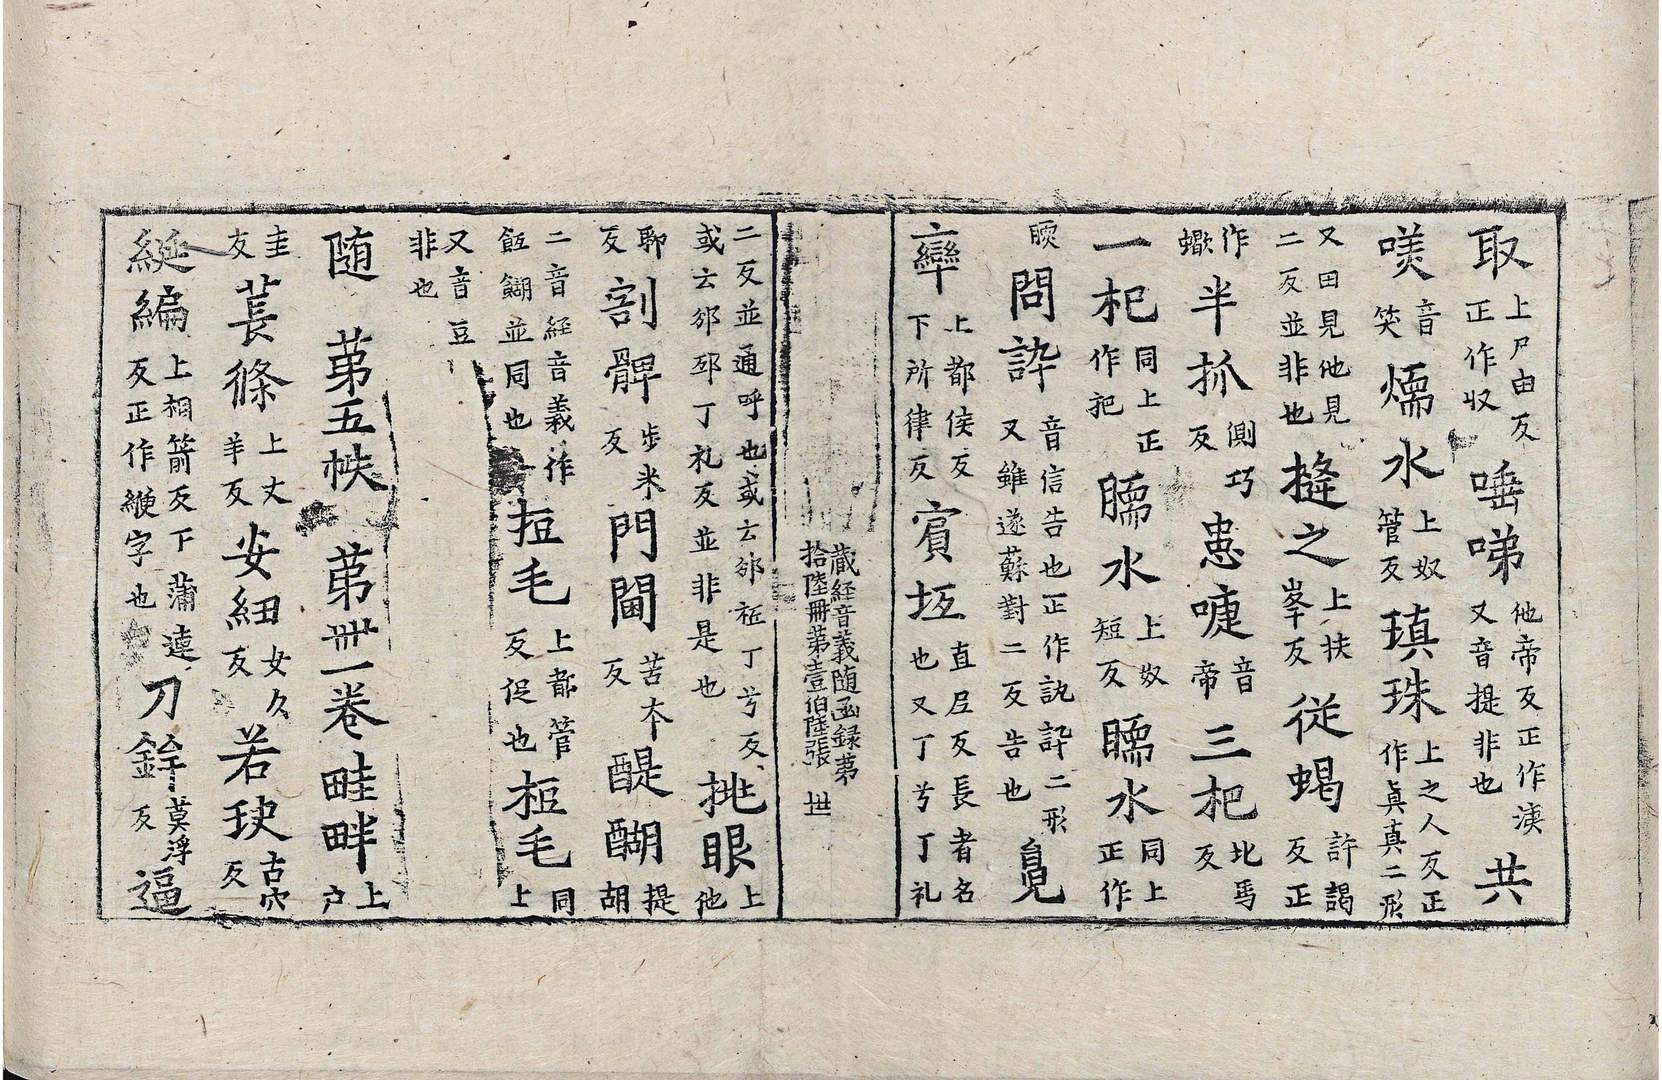 取上尸由反正作収唾啼他帝反正作洟又音提非也共
㗛音笑㬉水上奴管反瑱珠上之人反正作眞真二形
又田見他見二反並非也摓之上扶峯反従蝎許謁反正
作蠍半抓側巧反恚嚏音帝三杷比馬反
一杷同上正作把臑水上奴短反臑水同上正作
㬉問誶音信告也正作訙誶二形又雖遂蘇對二反告也覍
亠犖上都侯反下所律反賔坘直尼反長者名也又丁兮丁礼
藏経音義随函録第拾陸冊第壹伯陸張 丗
二反並通呼也或云邠䄌丁兮反或云邠邳丁礼反並非是也挑眼上他
聊反割髀步米反門閫苦本反醍醐提胡
二音経音義作䬫餬並同也拒毛上都管反促也柜毛同上
又音豆非也
随 苐五帙 苐卌一卷畦畔上户
圭反萇絛上丈羊反安紐女久反若玦古穴反
綖編上相箭反下蒲連反正作緶字也刀鉾莫浮反逼